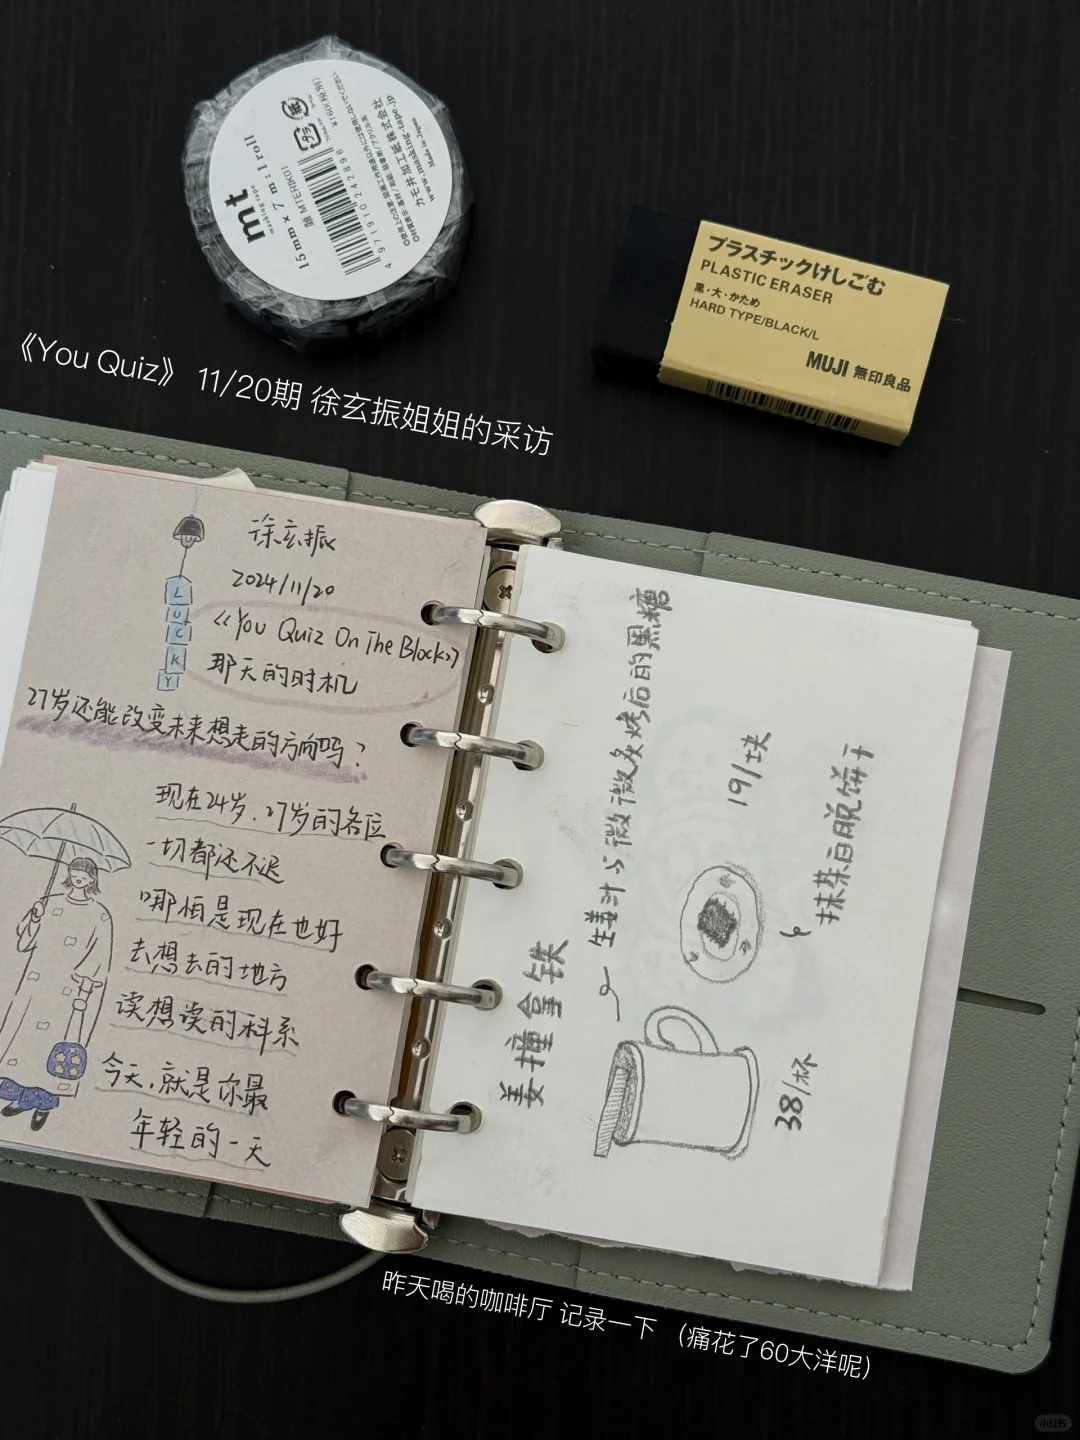 mt
masking tape
15mm × 7m:1roll
MTERIK01
¥160(税別)
4 971910 242896
カモ井加工紙株式会社
www.masking-tape.jp
Made in Japan
プラスチックけしごむ
PLASTIC ERASER
黒・大・かため
HARD TYPE/BLACK/L
MUJI 無印良品
《You Quiz》 11/20期 徐玄振姐姐的采访
徐玄振
2024/11/20
《You Quiz On The Block》
那天的时机
LUCKY
27岁还能改变未来想走的方向吗？
现在24岁、27岁的各位
一切都还不迟
哪怕是现在也好
去想去的地方
读想读的科系
今天，就是你最
年轻的一天
姜撞拿铁
生姜汁与微微炙烤后的黑糖
38/杯
19/块
抹茶白脱饼干
昨天喝的咖啡厅 记录一下 （痛花了60大洋呢）
小红书